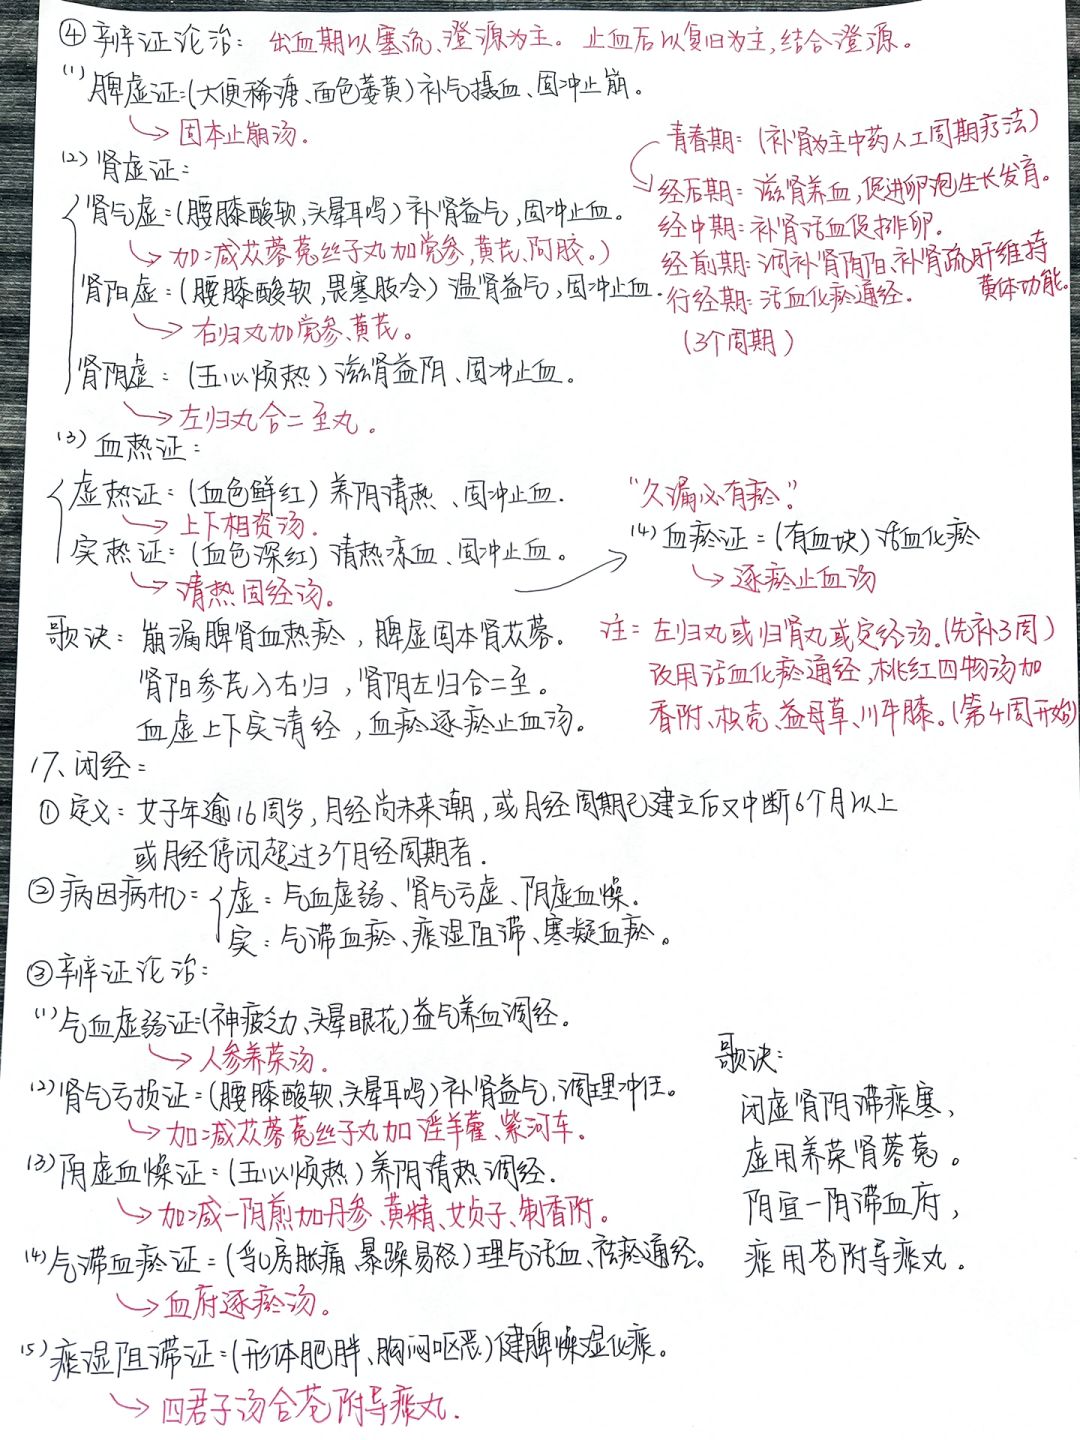 ④ 辨证论治：出血期以塞流、澄源为主。止血后以复旧为主，结合澄源。
(1) 脾虚证：(大便稀溏、面色萎黄) 补气摄血、固冲止崩。
→ 固本止崩汤.
(2) 肾虚证：
肾气虚：(腰膝酸软,头晕耳鸣) 补肾益气,固冲止血.
→ 加减苁蓉菟丝子丸加党参,黄芪,阿胶。)
肾阳虚：(腰膝酸软,畏寒肢冷) 温肾益气,固冲止血.
→ 右归丸加党参、黄芪。
肾阴虚：(五心烦热) 滋肾益阴、固冲止血。
→ 左归丸合二至丸.
青春期：(补肾为主中药人工周期疗法)
经后期：滋肾养血,促进卵泡生长发育。
经中期：补肾活血促排卵.
经前期：调补肾阴阳、补肾疏肝维持黄体功能。
行经期：活血化瘀通经.
(3个周期)
(3) 血热证：
虚热证：(血色鲜红) 养阴清热、固冲止血.
→ 上下相资汤.
实热证：(血色深红) 清热凉血、固冲止血。
→ 清热固经汤。
"久漏必有瘀."
(4) 血瘀证=(有血块) 活血化瘀
→ 逐瘀止血汤
歌诀：崩漏脾肾血热瘀,脾虚固本肾苁蓉。
肾阳参芪入右归,肾阴左归合二至。
血虚上下实清经,血瘀逐瘀止血汤。
注：左归丸或归肾丸或定经汤.(先补3周)
改用活血化瘀通经,桃红四物汤加
香附、枳壳、益母草、川牛膝。(第4周开始)
17、闭经：
① 定义：女子年逾16周岁,月经尚未来潮,或月经周期已建立后又中断6个月以上
或月经停闭超过3个月经周期者.
② 病因病机：虚：气血虚弱、肾气亏虚、阴虚血燥.
实：气滞血瘀、痰湿阻滞、寒凝血瘀。
③ 辨证论治：
(1) 气血虚弱证：(神疲乏力、头晕眼花) 益气养血调经。
→ 人参养荣汤.
(2) 肾气亏损证：(腰膝酸软、头晕耳鸣) 补肾益气,调理冲任。
→ 加减苁蓉菟丝子丸加淫羊藿、紫河车.
(3) 阴虚血燥证：(五心烦热) 养阴清热调经.
→ 加减一阴煎加丹参、黄精、女贞子、制香附。
(4) 气滞血瘀证：(乳房胀痛、暴躁易怒) 理气活血、祛瘀通经。
→ 血府逐瘀汤。
(5) 痰湿阻滞证：(形体肥胖、胸闷呕恶) 健脾燥湿化痰。
→ 四君子汤合苍附导痰丸.
歌诀：
闭虚肾阴滞痰寒,
虚用养荣肾蓉菟。
阴宜一阴滞血府,
痰用苍附导痰丸。